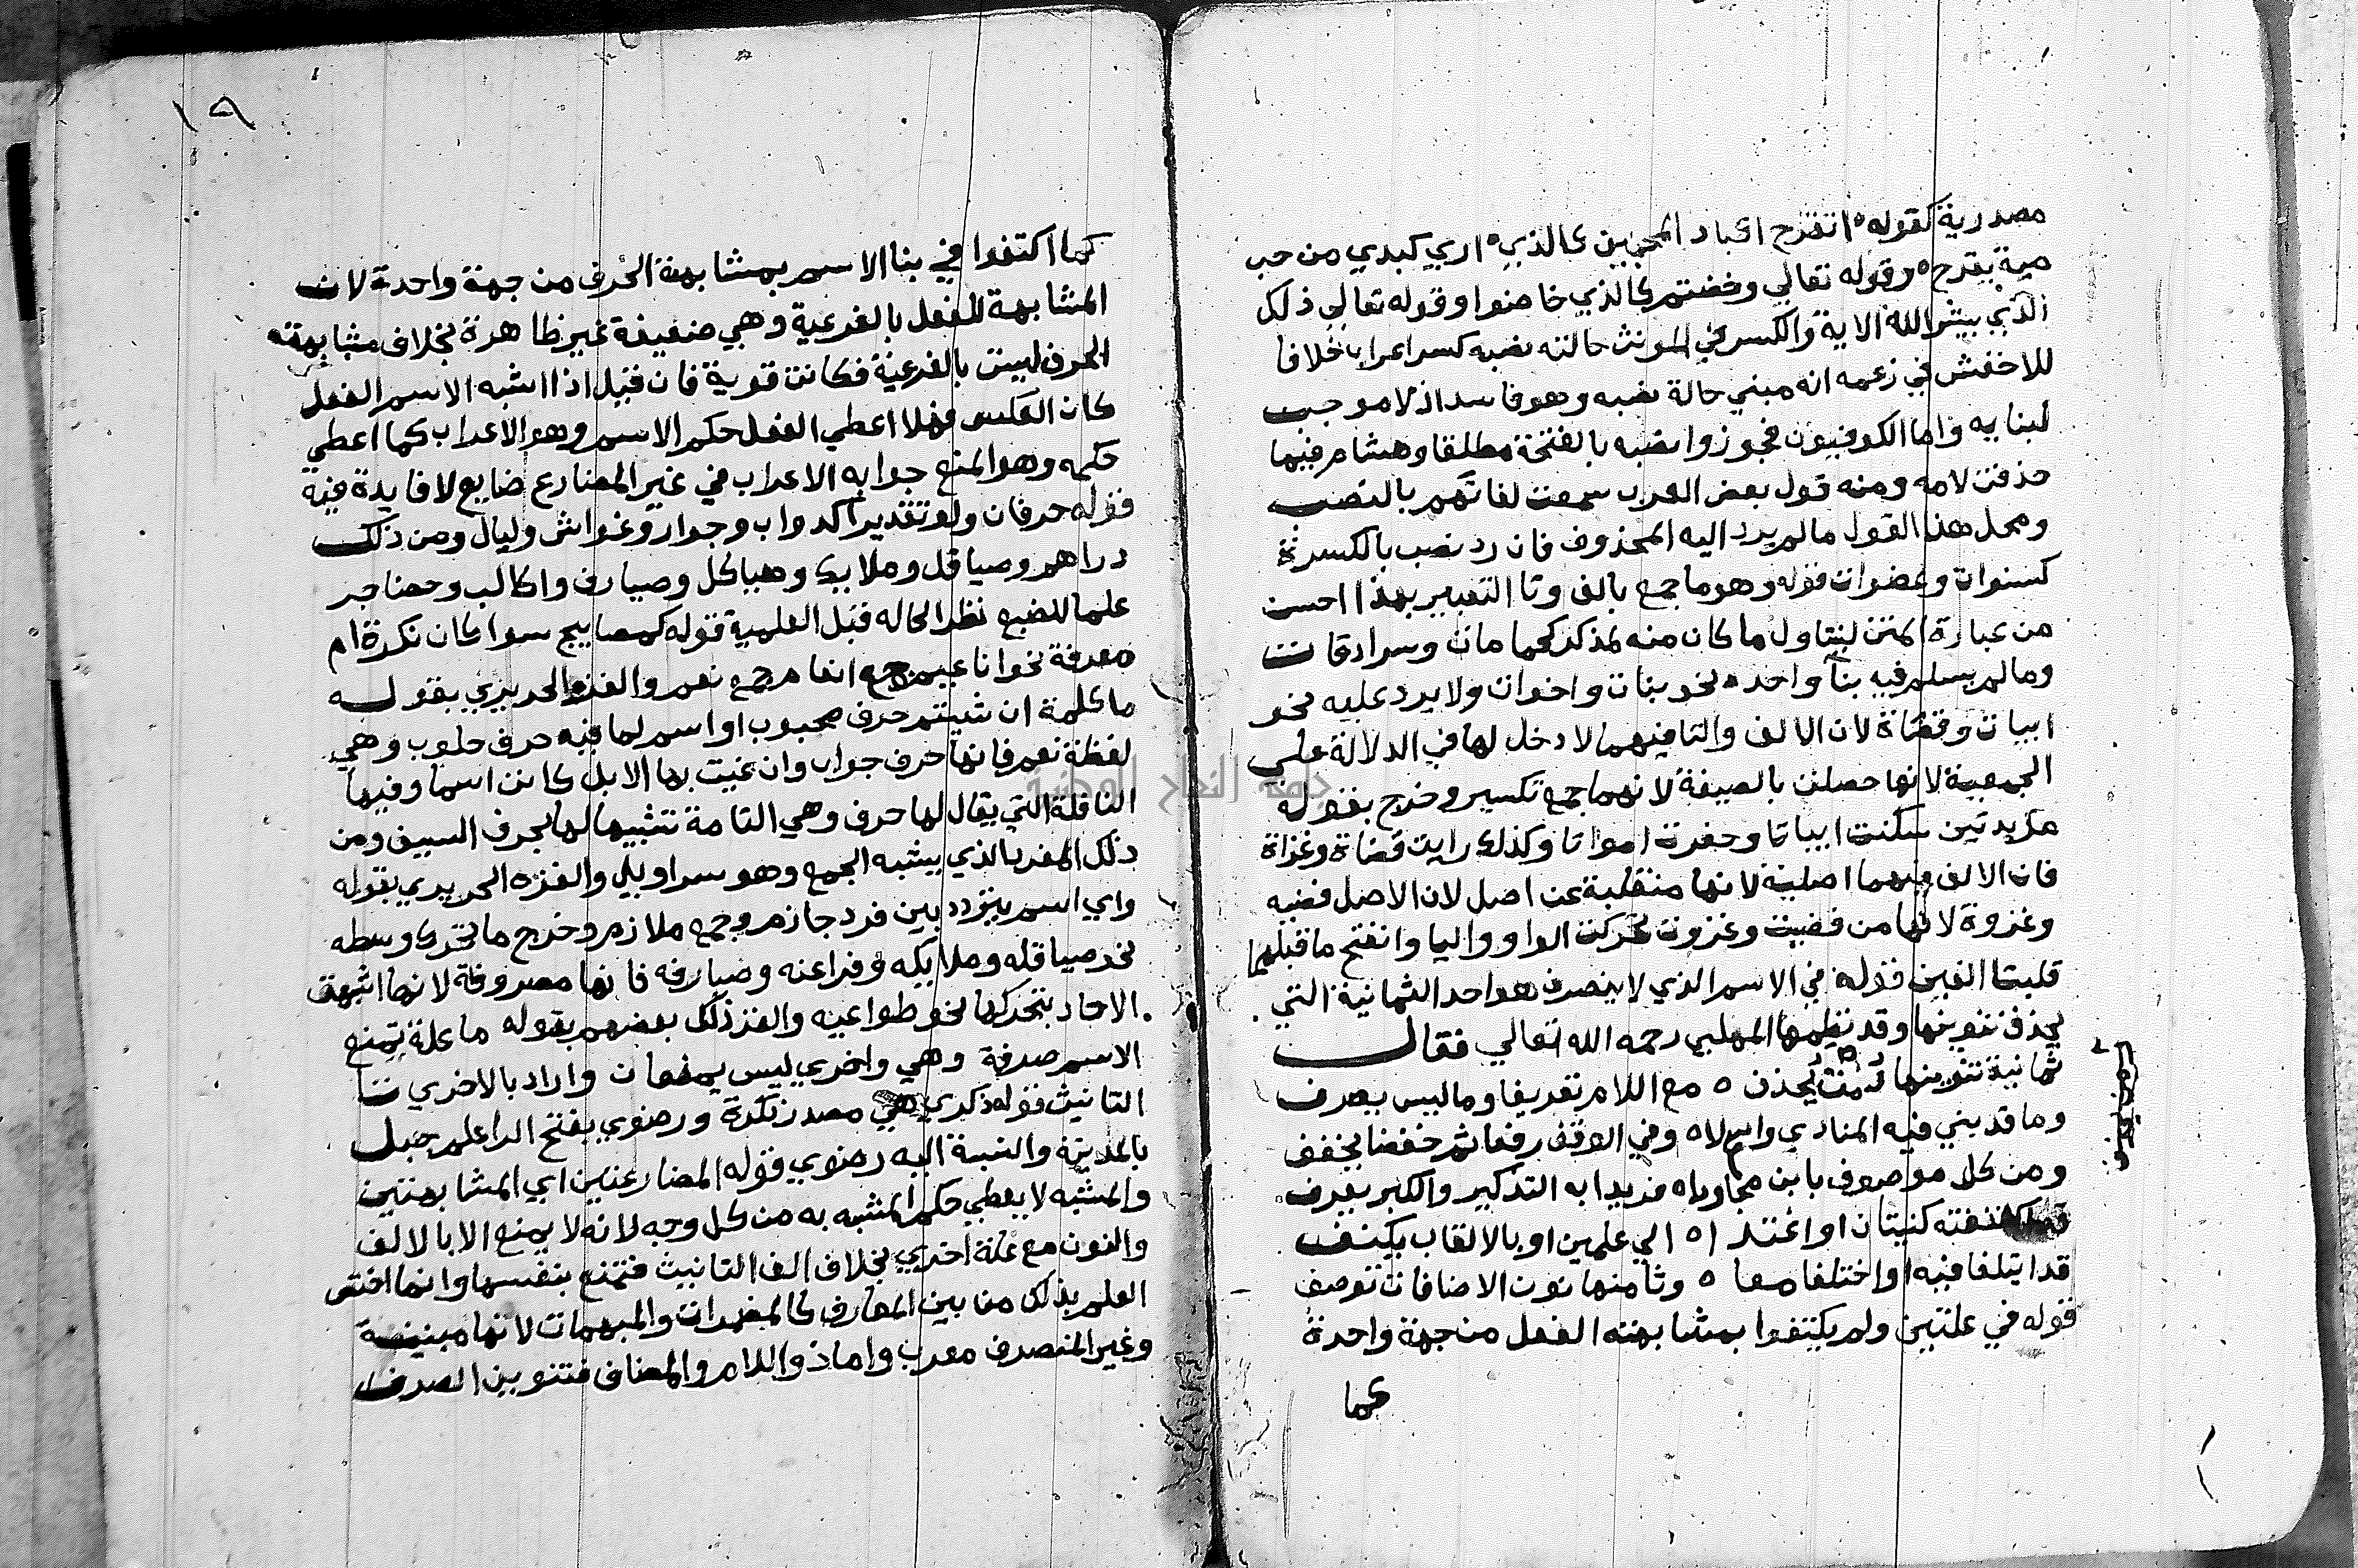 مصدرية كقوله اتقرح اكباد المحبين كالذي اري كبدي من حب
مية يقرح وقوله تعالي وخضتم كالذي خاضوا وقوله تعالي ذلك
الذي يبشر الله الاية والكسر في المونث حالته نصبه كسر اعراب خلافا
للاخفش في زعمه انه مبني حالة نصبه وهو فاسد اذ لا موجب
لبنايه واما الكوفيون فجوزوا نصبه بالفتحة مطلقا وهشام فيما
حذفت لامه ومنه قول بعض العرب سمعت لغاتهم بالنصب
ومحل هذا القول مالم يرد اليه المحذوف فان رد نصب بالكسرة
كسنوات وعضوات قوله وهو ما جمع بالف وتا التعبير بهذا احسن
من عبارة المتن ليتناول ما كان منه لمذكر كحمامات وسرادقات
ومالم يسلم فيه بنا واحده نحو بنات واخوات ولا يرد عليه نحو
ابيات وقضاة لان الالف والتا فيهما لا دخل لها في الدلالة علي
الجمعية لانها حصلت بالصيغة لانهما جمع تكسير وخرج بقوله
مزيدتين سكنت ابياتا وحفرت امواتا وكذلك رايت قضاة وغزاة
فان الالف فيهما اصلية لانها منقلبة عن اصل لان الاصل قضية
وغزوة لانها من قضيت وغزوت تحركت الواو واليا وانفتح ما قبلهما
قلبتا الفين قوله في الاسم الذي لا ينصرف هو احد الثمانية التي
يحذف تنوينها وقد نظمها المهلبي رحمه الله تعالي فقال
ثمانية تنوينها يحذف ه مع اللام تعريفا وما ليس يصرف
وما قد بني فيه المنادي واسم لا ه وفي الوقف رفعا ثم خفضا يخفف
ومن كل موصوف بابن مجاورا ه مزيدا به التذكير والكبر يعرف
كنفته كنيتان او اغتدا ه الي علمين او بالالقاب يكنف
قد ايتلفا فيه او اختلفا معا ه وثامنها نون الاضافات توصف
قوله في علتين ولم يكتفوا بمشابهته الفعل من جهة واحدة
كما
١٥
كما اكتفوا في بنا الاسم بمشابهة الحرف من جهة واحدة لان
المشابهة للفعل بالفرعية وهي ضعيفة غير ظاهرة بخلاف مشابهته
الحرف ليست بالفرعية فكانت قوية فان قيل اذا اشبه الاسم الفعل
كان العكس فهلا اعطي الفعل حكم الاسم وهو الاعراب كما اعطي
حكمه وهو المنع جوابه الاعراب في غير المضارع ضايع لا فايدة فيه
قوله حرفان ولو تقديرا كدواب وجوار وغواش وليال ومن ذلك
دراهم وصياقل وملايك وهياكل وصيارف واكالب وحضاجر
علما للضبع نظرا لحاله قبل العلمية قوله كمصابيح سوا كان نكرة ام
معرفة نحو اناعيم جمع انعام جمع نعم والغز الحريري بقوله
ما كلمة ان شيتم حرف محبوب او اسم لما فيه حرف حلوب وهي
لفظة نعم فانها حرف جواب وان عنيت بها الابل كانت اسما وفيها
الناقلة التي يقال لها حرف وهي التامة تشبيها لها بحرف السيف ومن
ذلك المفرد الذي يشبه الجمع وهو سراويل والغزه الحريري بقوله
واي اسم يتردد بين فرد حازم وجمع ملازم وخرج ما تحرك وسطه
نحو صياقله وملايكه وفراعنه وصيارفه فانها مصروفة لانها اشبهت
الاحاد بتحركها نحو طواعيه والغز ذلك بعضهم بقوله ما علة تمنع
الاسم صرفة وهي واخري ليس يمنعان واراد بالاخري تا
التانيث قوله ذكري هي مصدر نكرة ورضوي بفتح الرا علم جبل
بالمدينة والنسبة اليه رضوي قوله المضارعتين اي المشابهتين
والمشبه لا يعطي حكم المشبه به من كل وجه لانه لا يمنع الا بالالف
والنون مع علة اخري بخلاف الف التانيث فتمنع بنفسها وانما اختص
العلم بذلك من بين المعارف كالمضمرات والمبهمات لانها مبنية
وغير المنصرف معرب واما ذو اللام والمضاف فتنوين الصرف